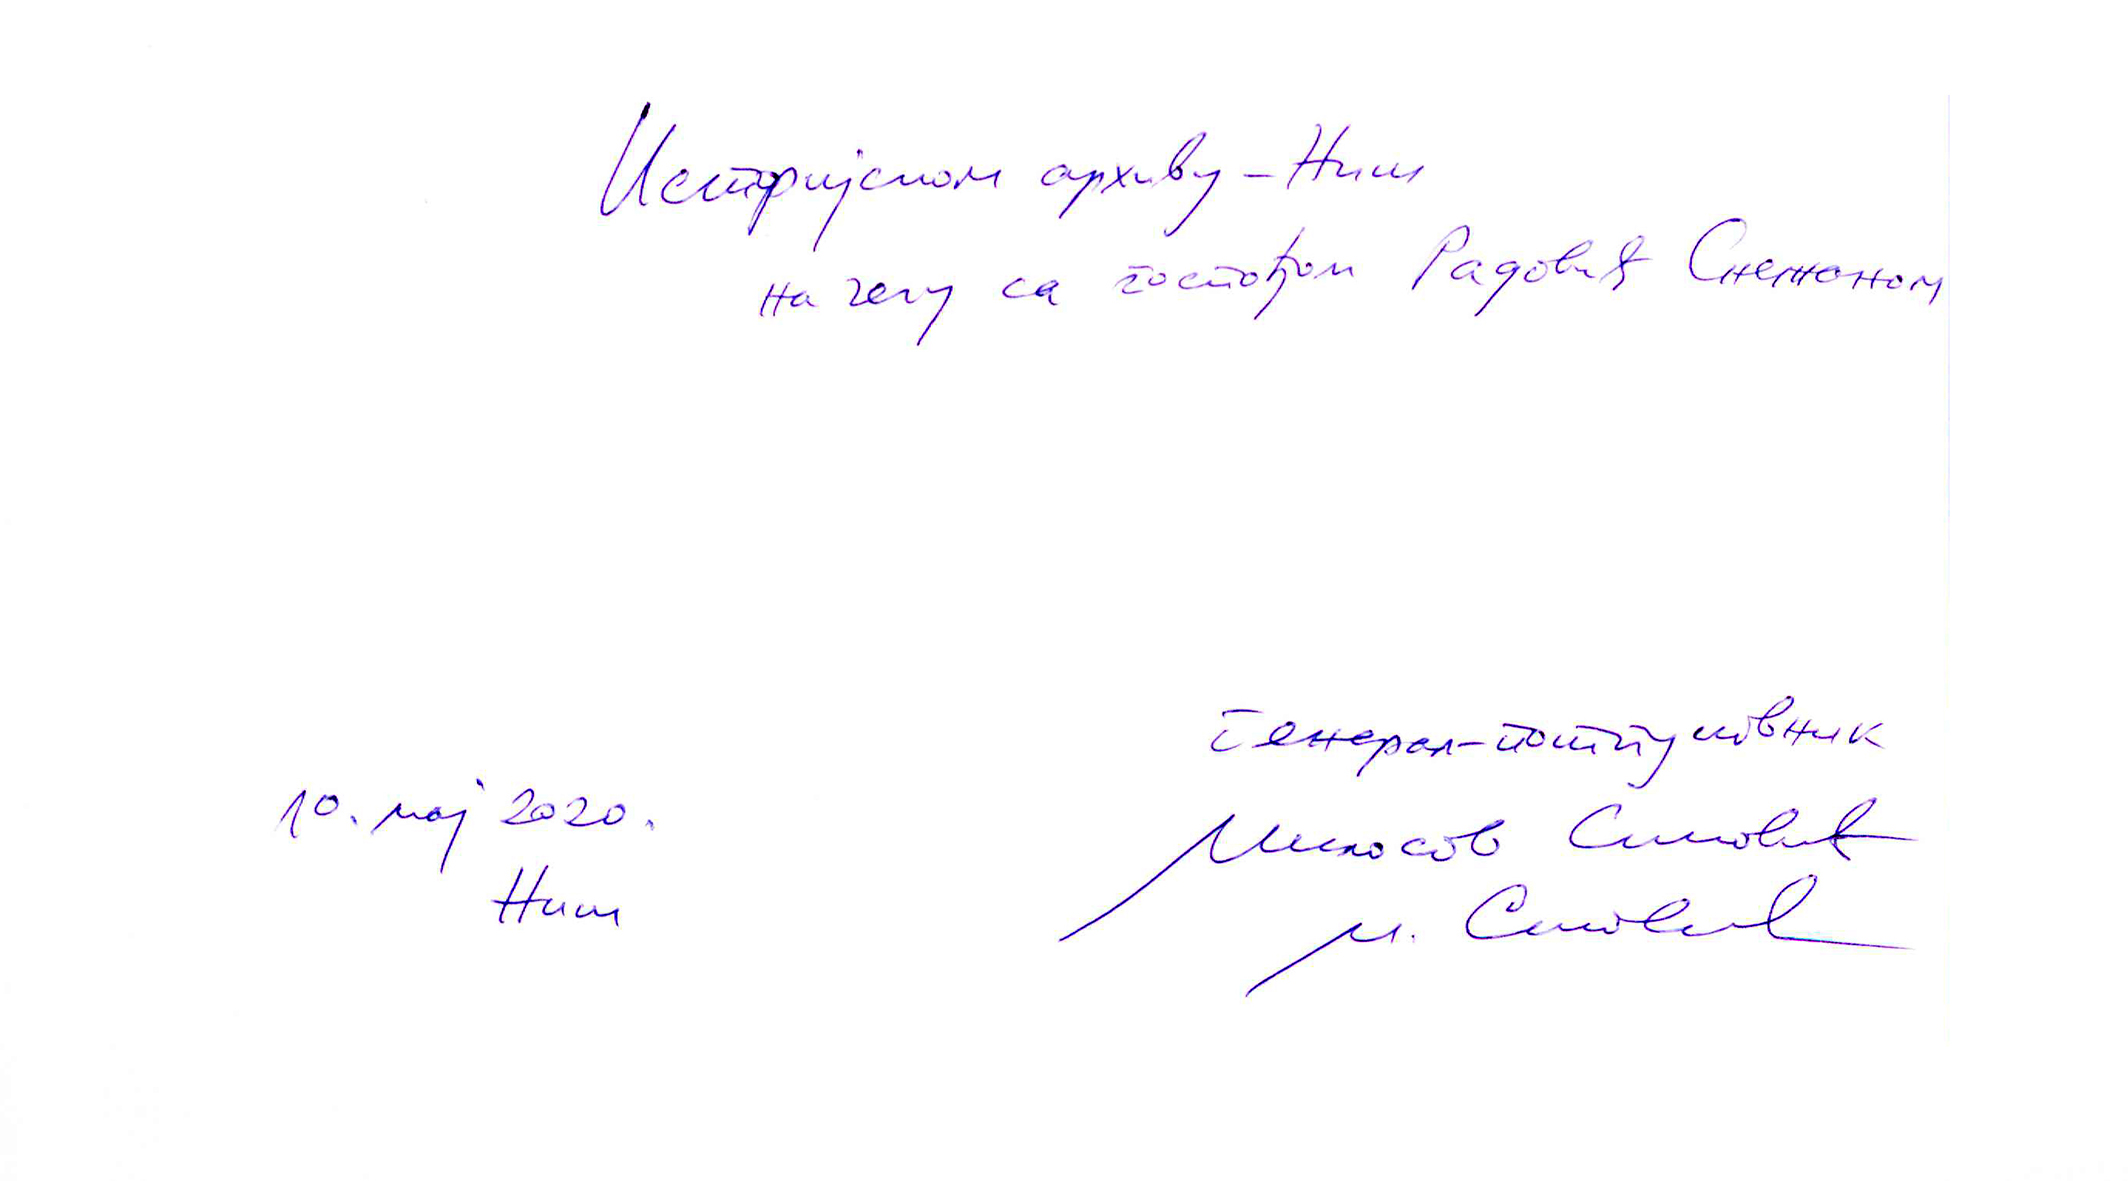 Историјском архиву - Ниш
на челу са госпођом Радовић Снежаном
Генерал-потпуковник
Милосав Симовић
М. Симовић
10. мај 2020.
Ниш